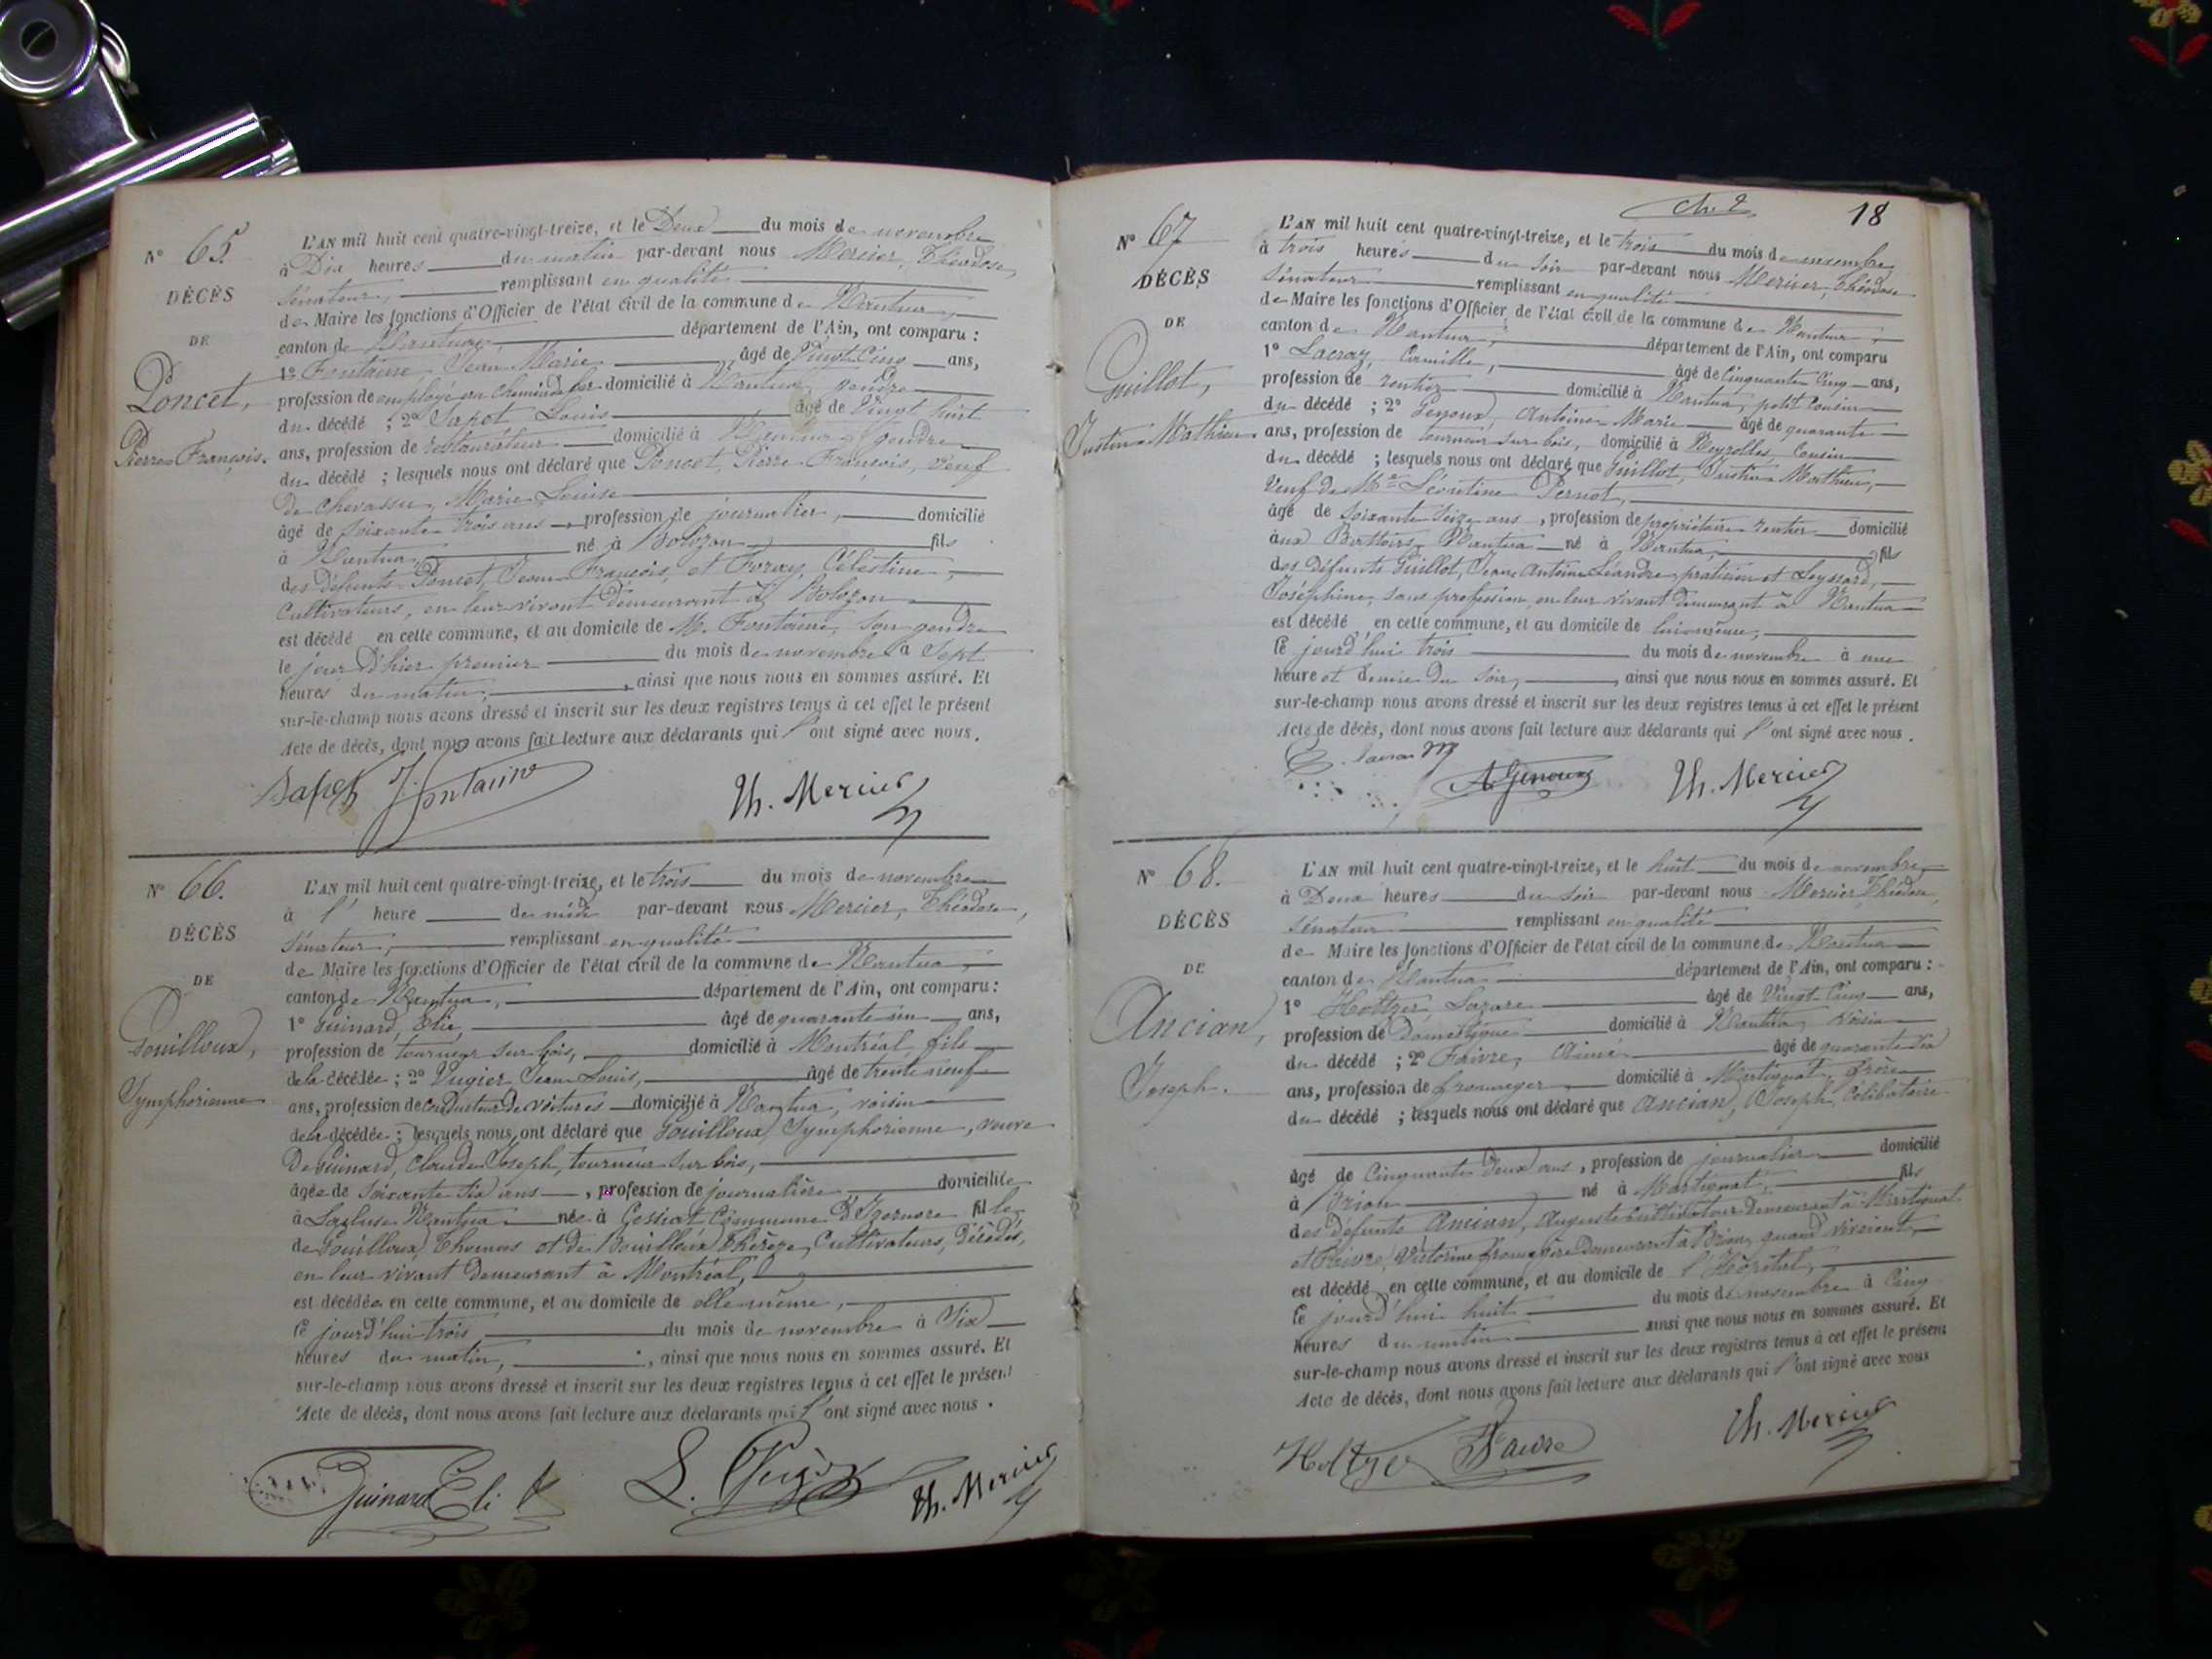 N° 65
DÉCÈS
DE
Poncet,
Pierre François.
L'AN mil huit cent quatre-vingt-treize, et le Deux du mois de novembre
à Dix heures du matin par-devant nous Mercier, Théodose,
sénateur, remplissant en qualité
de Maire les fonctions d'Officier de l'état civil de la commune de Nantua,
canton de Nantua, département de l'Ain, ont comparu :
1° Fontaine Jean Marie âgé de Vingt Cinq ans,
profession de employé au chemin de fer domicilié à Nantua, gendre
du décédé ; 2° Sapet Louis âgé de Vingt huit
ans, profession de restaurateur domicilié à Nantua, gendre
du décédé ; lesquels nous ont déclaré que Poncet, Pierre François, veuf
de Chevassu, Marie Louise
âgé de soixante trois ans, profession de journalier, domicilié
à Nantua, né à Bolozon fils
des défunts Poncet, Jean François, et Foray, Célestine,
Cultivateurs, en leur vivant demeurant à Bolozon
est décédé en cette commune, et au domicile de M. Fontaine, son gendre
le jour d'hier premier du mois de novembre à Sept
heures du matin, ainsi que nous nous en sommes assuré. Et
sur-le-champ nous avons dressé et inscrit sur les deux registres tenus à cet effet le présent
Acte de décès, dont nous avons fait lecture aux déclarants qui l'ont signé avec nous.
Sapet J. Fontaine Th. Mercier
N° 66.
DÉCÈS
DE
Gouilloux,
Symphorienne
L'AN mil huit cent quatre-vingt-treize, et le trois du mois de novembre
à l' heure de midi par-devant nous Mercier, Théodose,
sénateur, remplissant en qualité
de Maire les fonctions d'Officier de l'état civil de la commune de Nantua,
canton de Nantua, département de l'Ain, ont comparu :
1° Guinard, Elie, âgé de quarante un ans,
profession de tourneur sur bois, domicilié à Montréal, fils
de la décédée ; 2° Vugier Jean Louis, âgé de trente neuf
ans, profession de conducteur de voitures domicilié à Nantua, voisin
de la décédée ; lesquels nous ont déclaré que Gouilloux Symphorienne, veuve
De Guinard, Claude Joseph, tourneur sur bois,
âgée de soixante six ans, profession de journalière domiciliée
à Lacluse Nantua née à Gessiat Commune d'Izernore fille
de Gouilloux Thomas et de Bouilloux Thérèze, Cultivateurs, décédés,
en leur vivant demeurant à Montréal,
est décédée en cette commune, et au domicile de elle même,
le jourd'hui trois du mois de novembre à Six
heures du matin, ainsi que nous nous en sommes assuré. Et
sur-le-champ nous avons dressé et inscrit sur les deux registres tenus à cet effet le présent
Acte de décès, dont nous avons fait lecture aux déclarants qui l'ont signé avec nous.
Guinard Eli L. Vugier Th. Mercier
18
N° 67
DÉCÈS
DE
Guillot,
Justin Mathieu.
L'AN mil huit cent quatre-vingt-treize, et le trois du mois de novembre
à trois heures du soir par-devant nous Mercier, Théodose
sénateur remplissant en qualité
de Maire les fonctions d'Officier de l'état civil de la commune de Nantua,
canton de Nantua, département de l'Ain, ont comparu
1° Lacraz, Camille, âgé de Cinquante Cinq ans,
profession de rentier domicilié à Nantua, petit Cousin
du décédé ; 2° Genoux, Antoine Marie âgé de quarante
ans, profession de tourneur sur bois, domicilié à Neyrolles, Cousin
du décédé ; lesquels nous ont déclaré que Guillot, Justin Mathieu,
Veuf de Me Léontine Pernot,
âgé de soixante seize ans, profession de propriétaire rentier domicilié
aux Battoirs Nantua né à Nantua, fils
des défunts Guillot, Jean Antoine Léandre, praticien et Leyssard,
Joséphine, sans profession, en leur vivant demeurant à Nantua
est décédé en cette commune, et au domicile de lui même,
le jourd'hui trois du mois de novembre à une
heure et demie du soir, ainsi que nous nous en sommes assuré. Et
sur-le-champ nous avons dressé et inscrit sur les deux registres tenus à cet effet le présent
Acte de décès, dont nous avons fait lecture aux déclarants qui l'ont signé avec nous.
A. Genoux Th. Mercier
N° 68.
DÉCÈS
DE
Ancian,
Joseph.
L'AN mil huit cent quatre-vingt-treize, et le huit du mois de novembre,
à Deux heures du soir par-devant nous Mercier, Théodose,
sénateur remplissant en qualité
de Maire les fonctions d'Officier de l'état civil de la commune de Nantua
canton de Nantua département de l'Ain, ont comparu :
1° Holtzer, Lazare âgé de Vingt Cinq ans,
profession de Domestique domicilié à Nantua, voisin
du décédé ; 2° Faivre, Aimé âgé de quarante six
ans, profession de fromager domicilié à Martignat, frère
du décédé ; lesquels nous ont déclaré que Ancian, Joseph, Célibataire
âgé de Cinquante deux ans, profession de journalier domicilié
à Brion né à Martignat, fils
des défunts Ancian, Auguste Cultivateur demeurant à Martignat
et Faivre, Victorine fromagère demeurant à Brion, quand vivaient,
est décédé en cette commune, et au domicile de l'Hôpital,
le jourd'hui huit du mois de novembre à Cinq
heures du matin ainsi que nous nous en sommes assuré. Et
sur-le-champ nous avons dressé et inscrit sur les deux registres tenus à cet effet le présent
Acte de décès, dont nous avons fait lecture aux déclarants qui l'ont signé avec nous
Holtzer Faivre Th. Mercier